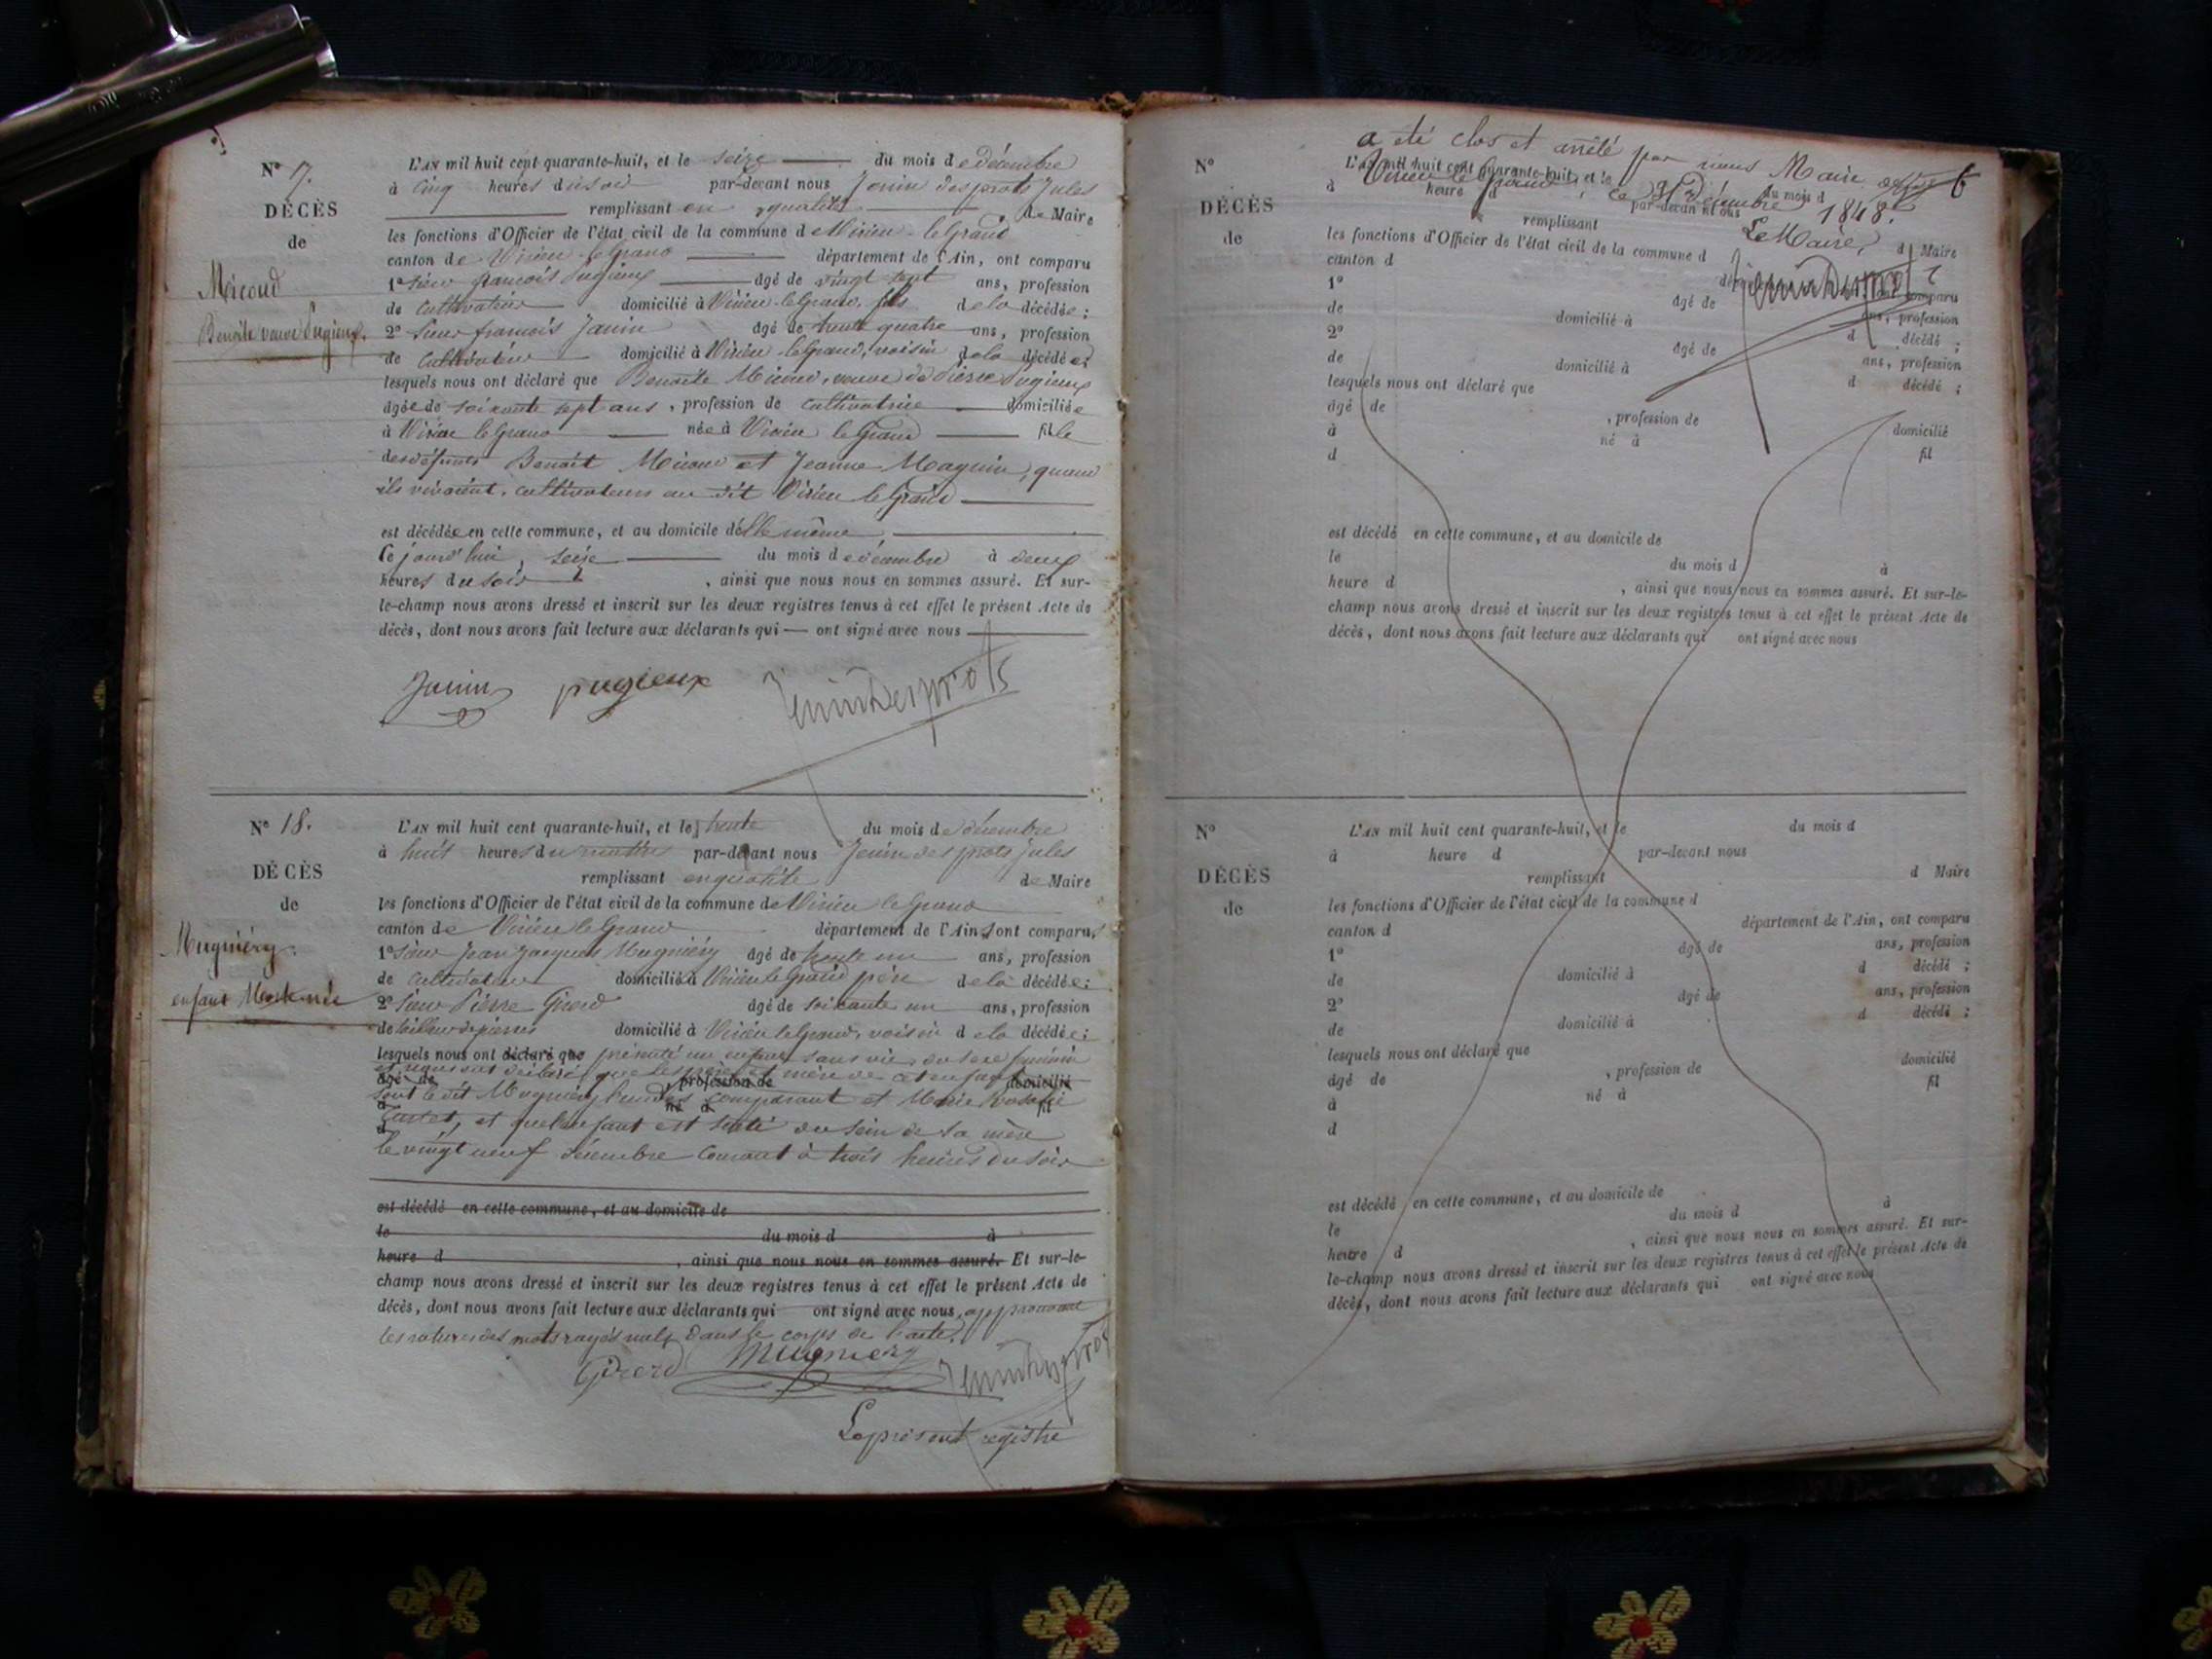 N° 7.
DÉCÈS
de
Micoud
Benoîte veuve Pugieux.
L'AN mil huit cent quarante-huit, et le seize du mois de décembre
à cinq heures du soir par-devant nous Janin des prots Jules
remplissant en qualité de Maire
les fonctions d'Officier de l'état civil de la commune de Virieu-le-Grand
canton de Virieu-le-Grand département de l'Ain, ont comparu
1° sieur françois Pugieux âgé de vingt sept ans, profession
de cultivateur domicilié à Virieu-le-Grand, fils de la décédée ;
2° Sieur françois Janin âgé de trente quatre ans, profession
de Cultivateur domicilié à Virieu-le-Grand, voisin de la décédée ;
lesquels nous ont déclaré que Benoîte Micoud, veuve de Pierre Pugieux
âgée de soixante sept ans, profession de cultivatrice domiciliée
à Virieu le Grand née à Virieu le Grand fille
des défunts Benoît Micoud et Jeanne Maguin, quand
ils vivaient, cultivateurs au dit Virieu le Grand
est décédée en cette commune, et au domicile d'elle même
Ce jourd'hui, seize du mois de décembre à deux
heures du soir, ainsi que nous nous en sommes assuré. Et sur-
le-champ nous avons dressé et inscrit sur les deux registres tenus à cet effet le présent Acte de
décès, dont nous avons fait lecture aux déclarants qui ont signé avec nous
Janin pugieux Janindesprots
N° 18.
DÉCÈS
de
Mugniéry.
enfant Mort-née
L'AN mil huit cent quarante-huit, et le trente du mois de décembre
à huit heures du matin par-devant nous Janin des prots jules
remplissant en qualité de Maire
les fonctions d'Officier de l'état civil de la commune de Virieu le Grand
canton de Virieu le Grand département de l'Ain, ont comparu,
1° sieur Jean Jacques Mugniéry âgé de trente un ans, profession
de Cultivateur domicilié à Virieu le Grand père de la décédée ;
2° Sieur Pierre Girerd âgé de soixante un ans, profession
de tailleur de pierres domicilié à Virieu le Grand, voisin de la décédée ;
lesquels nous ont déclaré que présenté un enfant sans vie, du sexe féminin
et nous ont déclaré que les père et mère de cet enfant
âgé de , profession de domicilié
sont le dit Mugniéry l'un des comparant et Marie Rosalie
à né à fil
et que l'enfant est sorti du sein de sa mère
d
le vingt neuf décembre courant à trois heures du soir
est décédé en cette commune, et au domicile de
le du mois d à
heure d , ainsi que nous nous en sommes assuré. Et sur-le-
champ nous avons dressé et inscrit sur les deux registres tenus à cet effet le présent Acte de
décès, dont nous avons fait lecture aux déclarants qui ont signé avec nous, approuvant
les ratures des mots rayés nuls dans le corps de l'acte.
Girerd Mugniery Janindesprots
Le présent registre
a été clos et arrêté par nous Maire
Virieu le Grand, le 31 Décembre 1848.
Le Maire,
Janindesprots
6
N°
DÉCÈS
de
L'AN mil huit cent quarante-huit, et le du mois d
à heure d par-devant nous
remplissant d Maire
les fonctions d'Officier de l'état civil de la commune d
canton d département de l'Ain, ont comparu
1° âgé de ans, profession
de domicilié à d décédé ;
2° âgé de ans, profession
de domicilié à d décédé ;
lesquels nous ont déclaré que
âgé de , profession de domicilié
à né à fil
d
est décédé en cette commune, et au domicile de
le du mois d à
heure d , ainsi que nous nous en sommes assuré. Et sur-le-
champ nous avons dressé et inscrit sur les deux registres tenus à cet effet le présent Acte de
décès, dont nous avons fait lecture aux déclarants qui ont signé avec nous
N°
DÉCÈS
de
L'AN mil huit cent quarante-huit, et le du mois d
à heure d par-devant nous
remplissant d Maire
les fonctions d'Officier de l'état civil de la commune d
canton d département de l'Ain, ont comparu
1° âgé de ans, profession
de domicilié à d décédé ;
2° âgé de ans, profession
de domicilié à d décédé ;
lesquels nous ont déclaré que
âgé de , profession de domicilié
à né à fil
d
est décédé en cette commune, et au domicile de
le du mois d à
heure d , ainsi que nous nous en sommes assuré. Et sur-
le-champ nous avons dressé et inscrit sur les deux registres tenus à cet effet le présent Acte de
décès, dont nous avons fait lecture aux déclarants qui ont signé avec nous